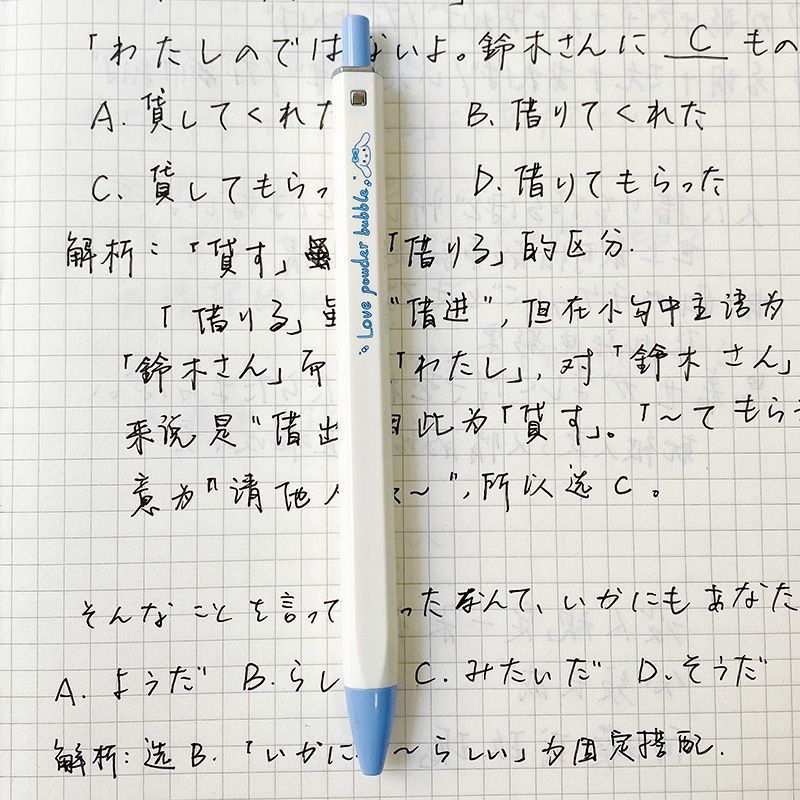 「わたしのではないよ。鈴木さんに C もの
A. 貸してくれた B. 借りてくれた
C. 貸してもらっ D. 借りてもらった
解析：「貸す」 「借りる」的区分.
「借りる」虽 "借进"，但在小句中主语为
「鈴木さん」而 「わたし」，对「鈴木さん」
来说是"借出 因此为「貸す」。「～てもらう
意为"请他人 ～"，所以选 C。
そんなことを言って ったなんて、いかにもあなた
A. ようだ B. らし C. みたいだ D. そうだ
解析：选 B.「いかに ～らしい」为固定搭配.
Love powder bubble